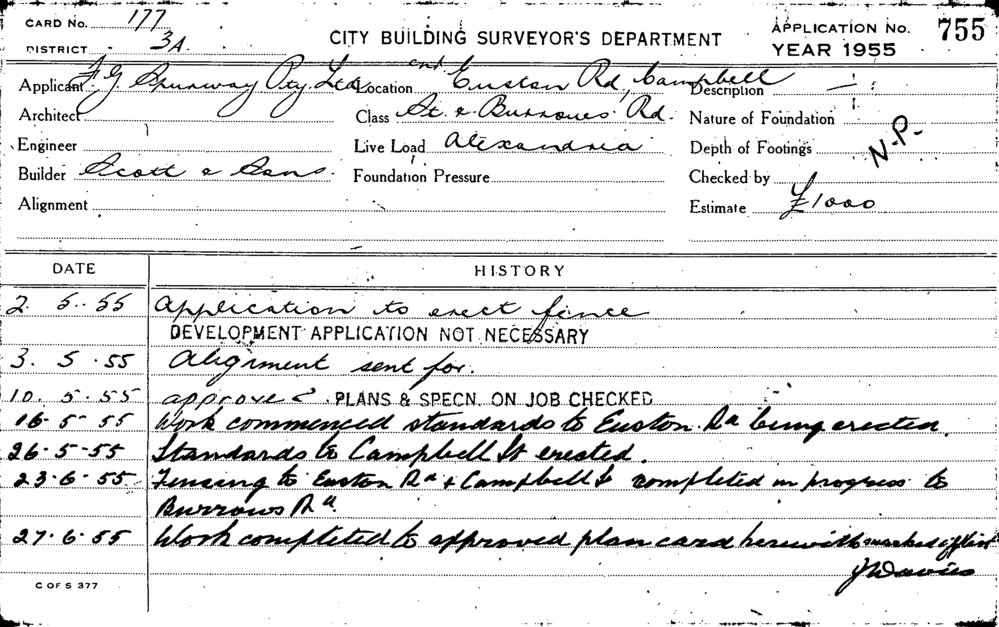 CARD No. 177
DISTRICT 3A.
CITY BUILDING SURVEYOR'S DEPARTMENT
APPLICATION No. 755
YEAR 1955
Applicant F G Spurway Pty. Ltd
Location cnr Euston Rd, Campbell
Description
Architect
Class St. & Burrows Rd.
Nature of Foundation
Engineer
Live Load Alexandria
Depth of Footings
N.P.
Builder Scott & Sons.
Foundation Pressure
Checked by
Alignment
Estimate £1000
DATE HISTORY
2. 5. 55 Application to erect fence
DEVELOPMENT APPLICATION NOT NECESSARY
3. 5. 55 Alignment sent for.
10. 5. 55 approved PLANS & SPECN. ON JOB CHECKED
16-5-55 Work commenced standards to Euston Rd being erected.
26-5-55 Standards to Campbell St erected.
23-6-55 Fencing to Euston Rd & Campbell St completed in progress to
Burrows Rd.
27-6-55 Work completed to approved plan card herewith marked off list
J Davies
C OF S 377